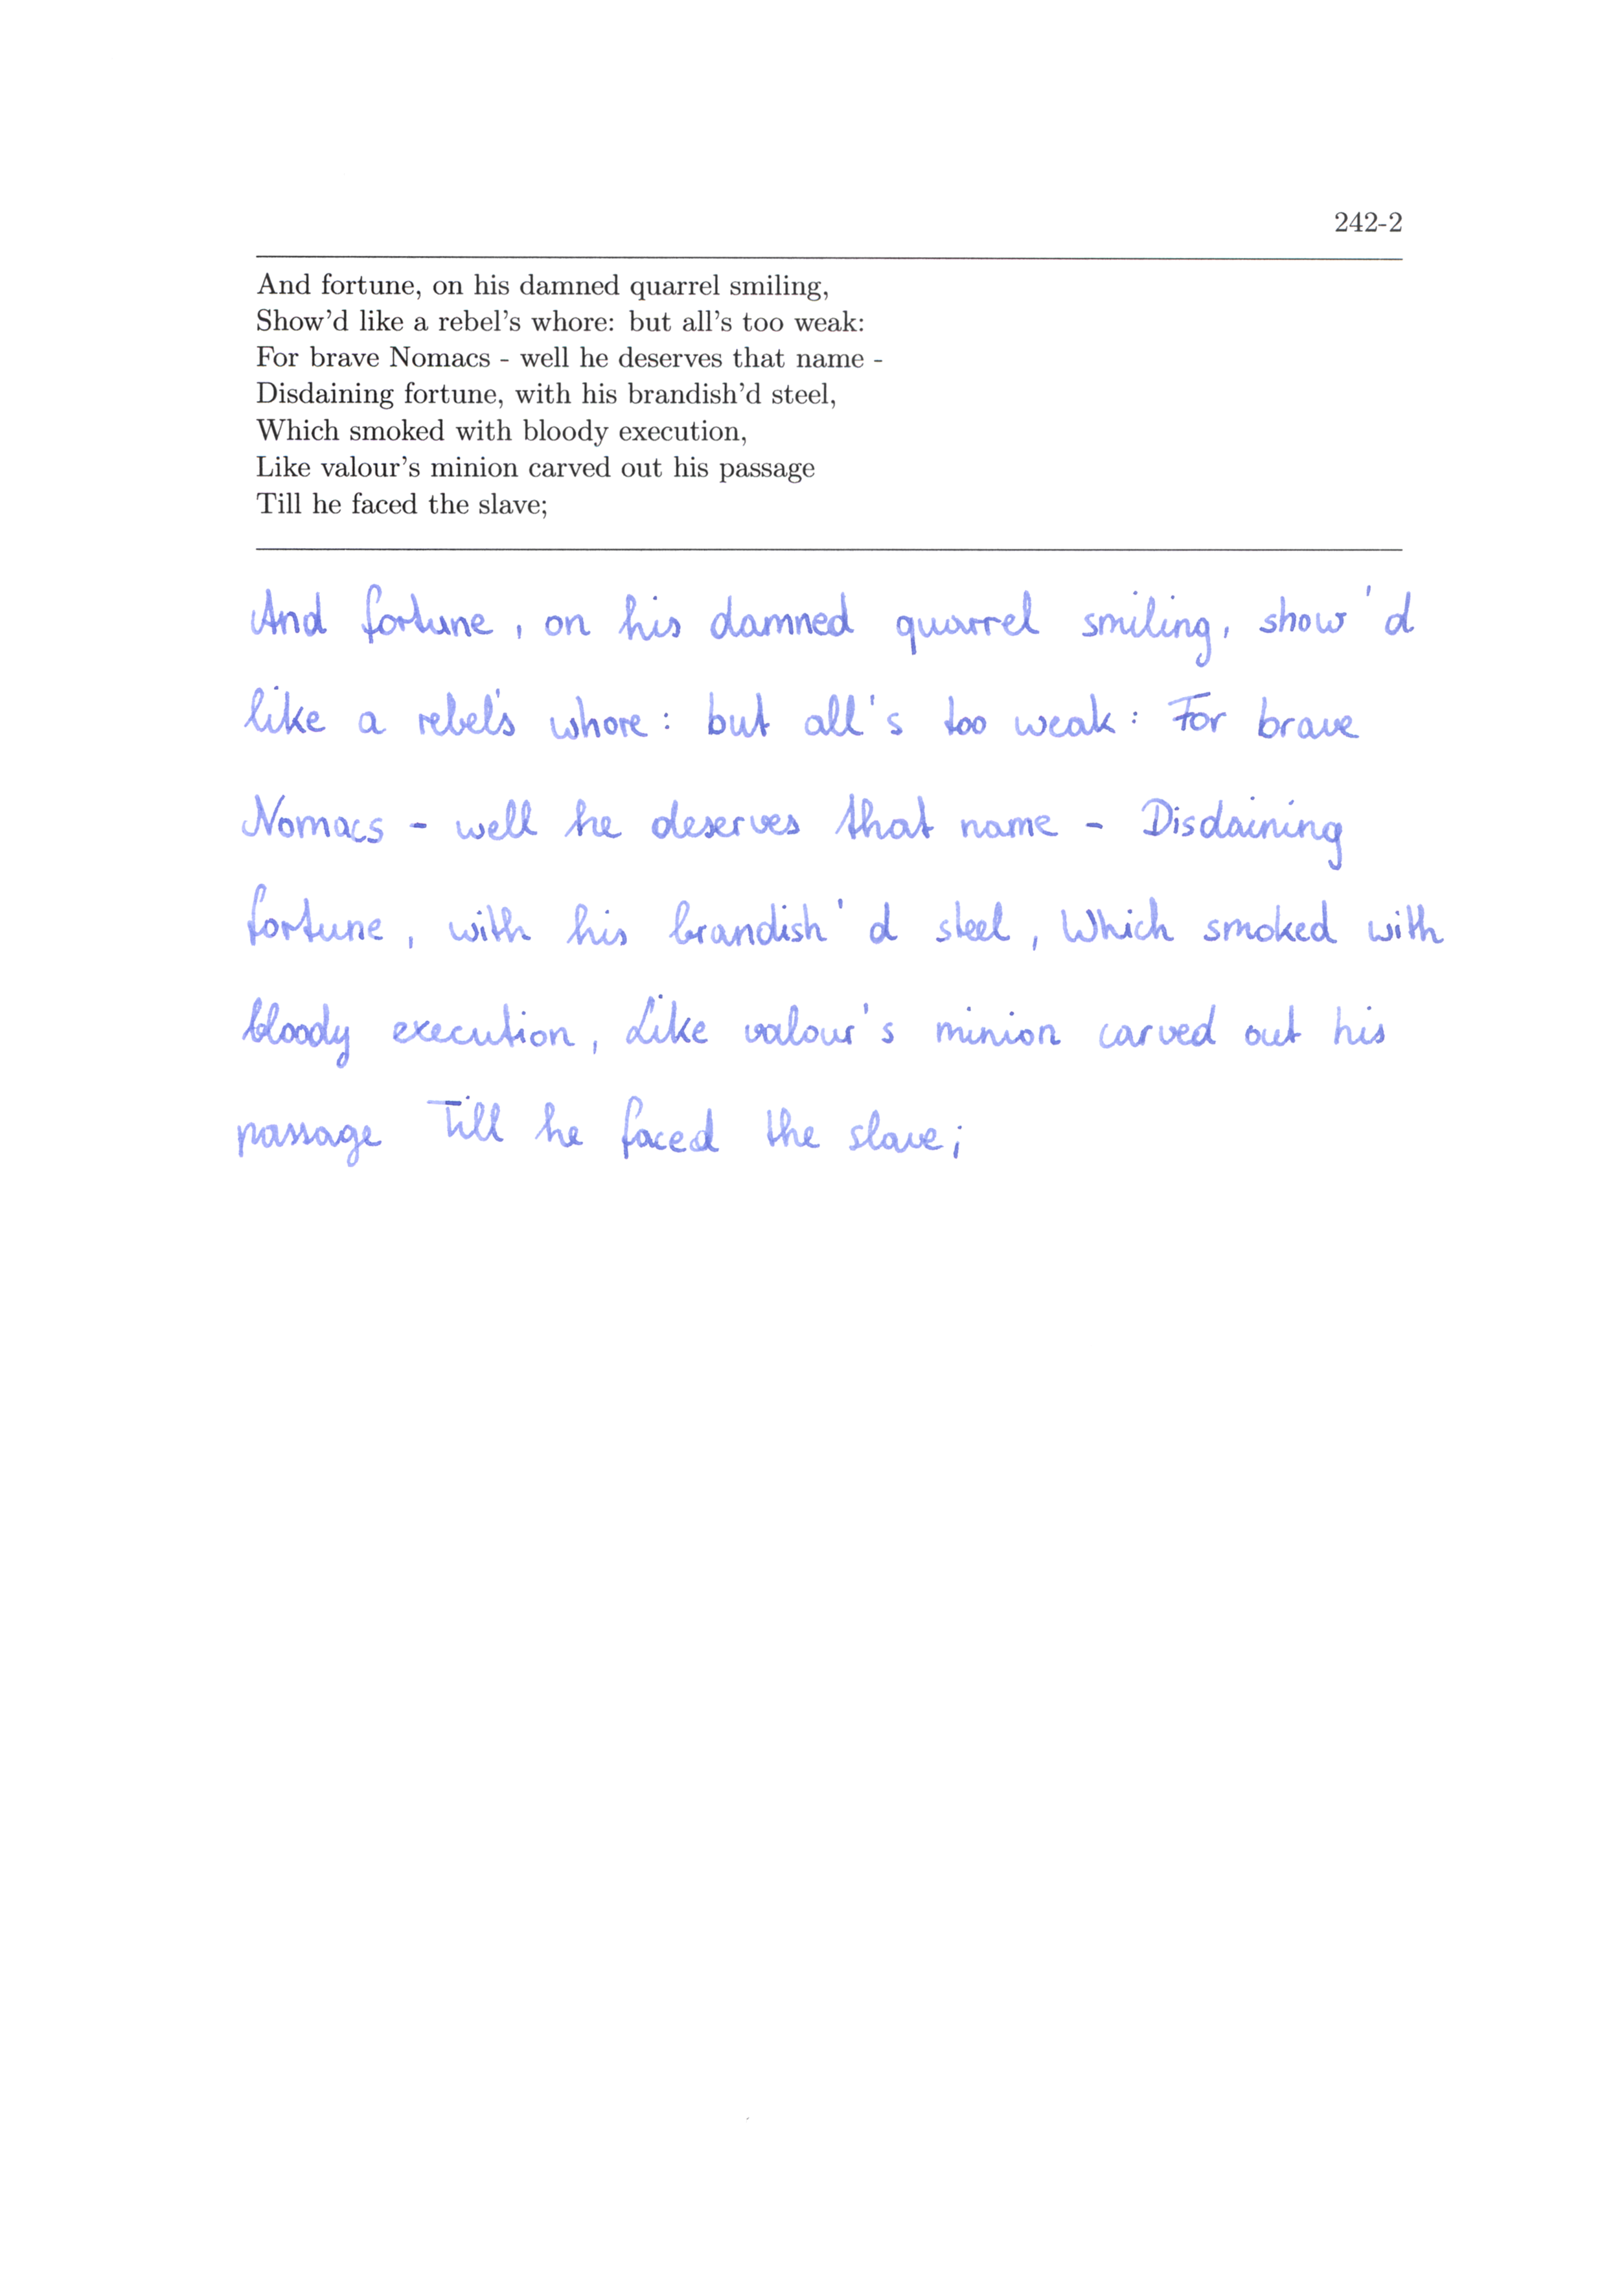 242-2
And fortune, on his damned quarrel smiling,
Show'd like a rebel's whore: but all's too weak:
For brave Nomacs - well he deserves that name -
Disdaining fortune, with his brandish'd steel,
Which smoked with bloody execution,
Like valour's minion carved out his passage
Till he faced the slave;
And fortune, on his damned quarrel smiling, show'd
like a rebel's whore: but all's too weak: For brave
Nomacs - well he deserves that name - Disdaining
fortune, with his brandish'd steel, Which smoked with
bloody execution, Like valour's minion carved out his
passage Till he faced the slave;